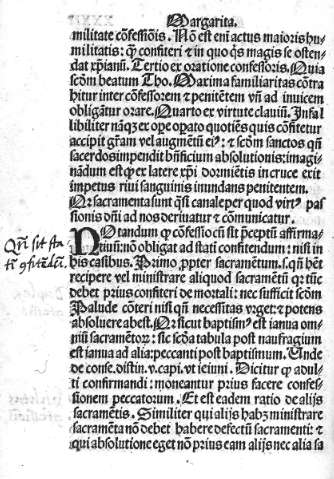 Margarita.
militate cōfessiōis. Nō est eni actus maioris hu-
militatis: qꝫ confiteri ⁊ in quo q̄s magis se osten-
dat xp̄ianū. Tertio ex oratione confessoris. Quia
scōm beatum Tho. Maxima familiaritas cōtra
hitur inter cōfessorem ⁊ penitētem vn̄ ad inuicem
obligātur orare. Quarto ex virtute clauiū. Infal
libiliter nāqꝫ ex ope opato quotiēs quis cōfitetur
accipit gr̄am vel augmentū eiꝰ: ⁊ scōm sanctos qn̄
sacerdos impendit bn̄ficium absolutionis: imagi
nādum est qꝙ ex latere xp̄i dormiētis in cruce exit
impetus riui sanguinis inundans penitentem.
Nꝫ sacramenta sunt q̄si canale per quod virtꝰ pas
sionis dn̄i ad nos deriuatur ⁊ cōmunicatur.
Qn̄ sit sta
tī cōfitēdū.
NOtandum ꝙ confessio cū sit p̄ceptū affirma
tiuū: nō obligat ad statī confitendum: nisi in
his casibus. Primo ꝓpter sacramētum. s. qn̄ hēt
recipere vel ministrare aliquod sacramētū qꝛ tūc
debet prius confiteri de mortali: nec sufficit scōm
Palude cōteri nisi qn̄ necessitas vrget: ⁊ potens
absoluere abest. Nꝫ sicut baptismꝰ est ianua om-
niū sacramētoꝝ: sic scōa tabula post naufragium
est ianua ad alia: peccanti post baptismum. Unde
de conse. distin. v. capi. vt ieiuni. Dicitur ꝙ adul-
ti confirmandi: moneantur prius facere confes-
sionem peccatorum. Et est eadem ratio de alijs
sacramētis. Similiter qui alijs habꝫ ministrare
sacramēta nō debet habere defectū sacramenti: ⁊
qui absolutione eget nō prius eam alijs nec alia sa